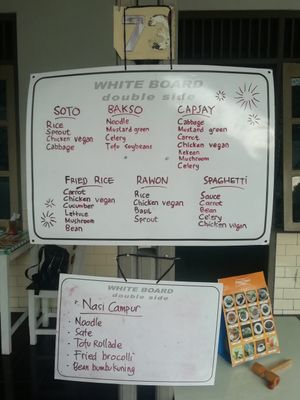 73
WHITE BOARD
double side
SOTO
Rice
Sprout
Chicken vegan
Cabbage
BAKSO
Noodle
Mustard green
Celery
Tofu soybeans
CAPJAY
Cabbage
Mustard green
Carrot
Chicken vegan
Kekeen
Muchroom
Celery
FRIED RICE
Carrot
Chicken vegan
Cucumber
Lettuce
Mushroom
Bean
RAWON
Rice
Chicken vegan
Basil
Sprout
SPAGHETTI
Sauce
Carrot
Bean
Celery
Chicken vegan
WHITE BOARD
double side
Nasi Campur
Noodle
Sate
Tofu Rollade
Fried brocolli
Bean bumbu kuning